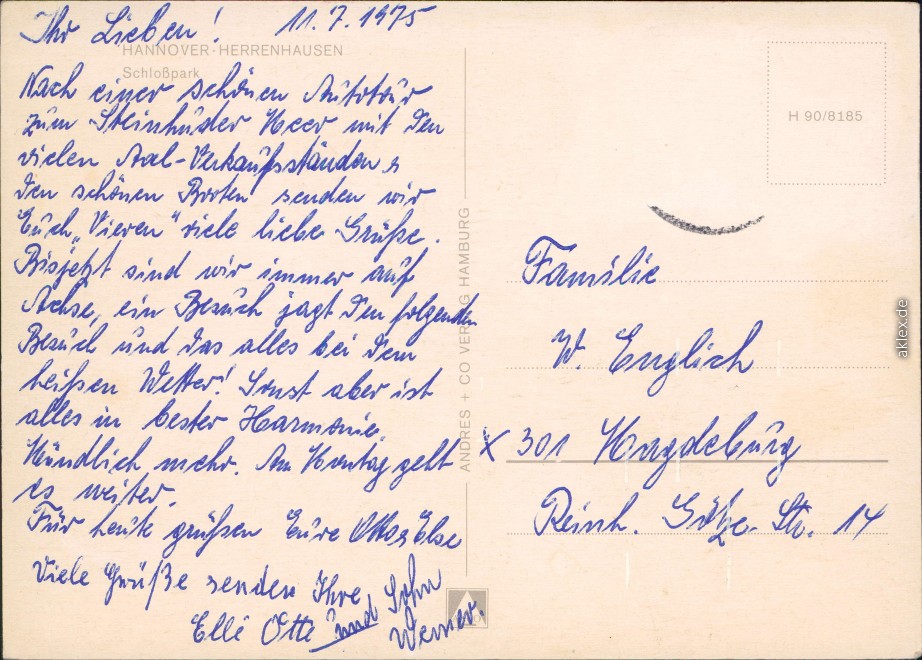 Ihr Lieben! 11.7.1975
HANNOVER-HERRENHAUSEN
Schloßpark
Nach einer schönen Autotour
zum Steinhuder Meer mit den
vielen Aal-Verkaufsständen &
den schönen Booten senden wir
Euch „Vieren" viele liebe Grüße.
Bisjetzt sind wir immer auf
Achse, ein Besuch jagt den folgenden
Besuch und das alles bei dem
heißen Wetter! Sonst aber ist
alles in bester Harmonie.
Mündlich mehr. Am Montag geht
es weiter.
Für heute grüßen Eure Otto & Else
Viele Grüße senden Ihre
Elli Otte und Sohn
Werner.
ANDRES + CO VERLAG HAMBURG
H 90/8185
Familie
W. Englich
X 301 Magdeburg
Reinh. Götze-Str. 14
aklex.de